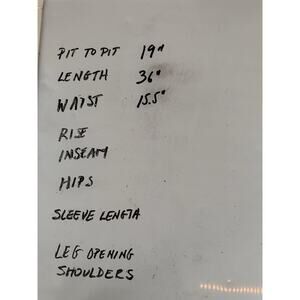 PIT TO PIT 19"
LENGTH 36"
WAIST 15.5"
RISE
INSEAM
HIPS
SLEEVE LENGTH
LEG OPENING
SHOULDERS